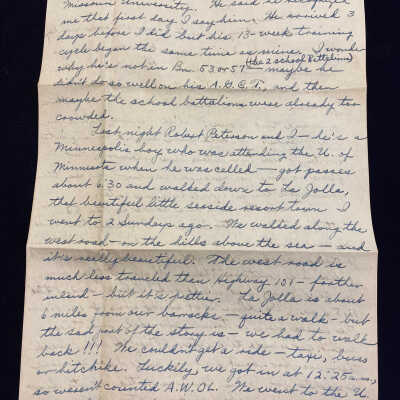 Missouri University. He said he recognized
me that first day I saw him. He arrived 3
days before I did but his 13-week training
cycle began the same time as mine. I wonder
(the 2 school Battalions)
why he's not in Bn. 53 or 57 — maybe he
didn't do so well on his A.G.C.T. and then
maybe the school battalions were already too
crowded.
Last night Robert Peterson and I — he's a
Minneapolis boy who was attending the U. of
Minnesota when he was called — got passes
about 6:30 and walked down to La Jolla,
that beautiful little seaside resort town I
went to 2 Sundays ago. We walked along the
west road — on the hills above the sea — and
it's really beautiful. The west road is
much less traveled than Highway 101 — farther
inland — but it's prettier. La Jolla is about
6 miles from our barracks — quite a walk — but
the sad part of the story is — we had to walk
back!!! We couldn't get a ride — taxi, bus
or hitchike. Luckily, we got in at 12:25 a.m.,
so weren't counted A.W.O.L. We went to the U.